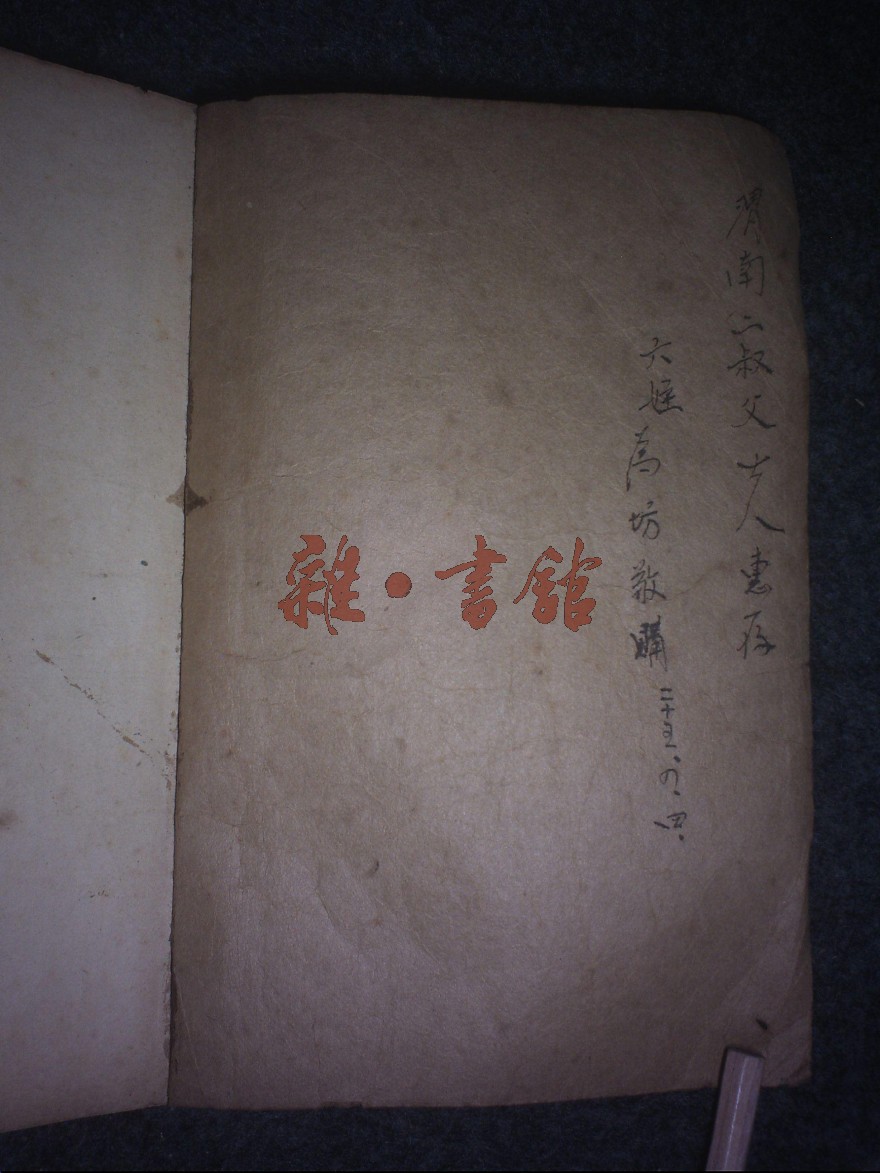 渭南二叔父大人惠存
六侄高坊敬購
二十五、九、四、
雜·書館